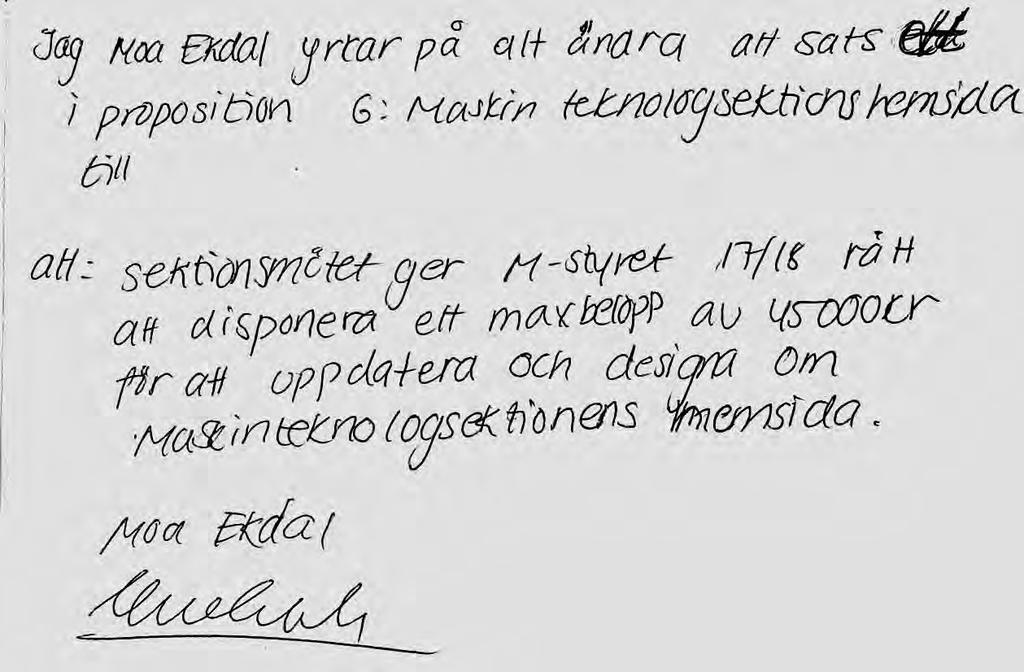 Jag Moa Ekdal yrkar på att ändra att sats
i proposition 6: Maskinteknologsektions hemsida
till
att: sektionsmötet ger M-styret 17/18 rätt
att disponera ett maxbelopp av 45000kr
för att uppdatera och designa om
Maskinteknologsektionens hemsida.
Moa Ekdal